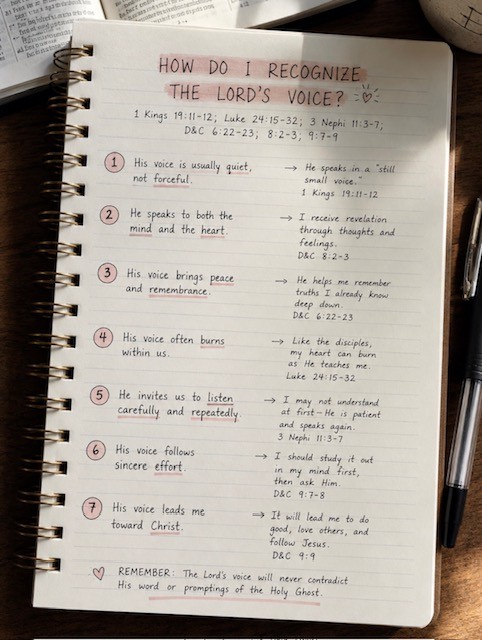 HOW DO I RECOGNIZE
THE LORD'S VOICE?
1 Kings 19:11-12; Luke 24:15-32; 3 Nephi 11:3-7;
D&C 6:22-23; 8:2-3; 9:7-9
1 His voice is usually quiet,
not forceful.
→ He speaks in a "still
small voice."
1 Kings 19:11-12
2 He speaks to both the
mind and the heart.
→ I receive revelation
through thoughts and
feelings.
D&C 8:2-3
3 His voice brings peace
and remembrance.
→ He helps me remember
truths I already know
deep down.
D&C 6:22-23
4 His voice often burns
within us.
→ Like the disciples,
my heart can burn
as He teaches me.
Luke 24:15-32
5 He invites us to listen
carefully and repeatedly.
→ I may not understand
at first—He is patient
and speaks again.
3 Nephi 11:3-7
6 His voice follows
sincere effort.
→ I should study it out
in my mind first,
then ask Him.
D&C 9:7-8
7 His voice leads me
toward Christ.
→ It will lead me to do
good, love others, and
follow Jesus.
D&C 9:9
REMEMBER: The Lord's voice will never contradict
His word or promptings of the Holy Ghost.